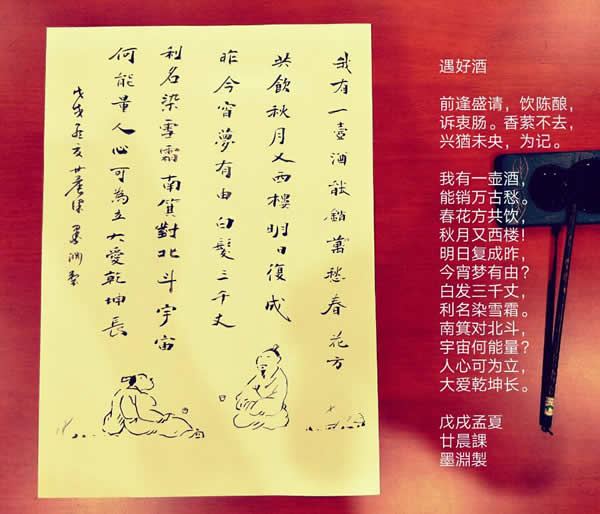 我有一壺酒能銷萬愁春花方
共飲秋月又西樓明日復成
昨今宵夢有由白髮三千丈
利名染雪霜南箕對北斗宇宙
何能量人心可為立大愛乾坤長
戊戌 廿晨課 墨淵製
遇好酒
前逢盛请，饮陈酿，
诉衷肠。香萦不去，
兴犹未央，为记。
我有一壶酒，
能销万古愁。
春花方共饮，
秋月又西楼！
明日复成昨，
今宵梦有由？
白发三千丈，
利名染雪霜。
南箕对北斗，
宇宙何能量？
人心可为立，
大爱乾坤长。
戊戌孟夏
廿晨課
墨淵製